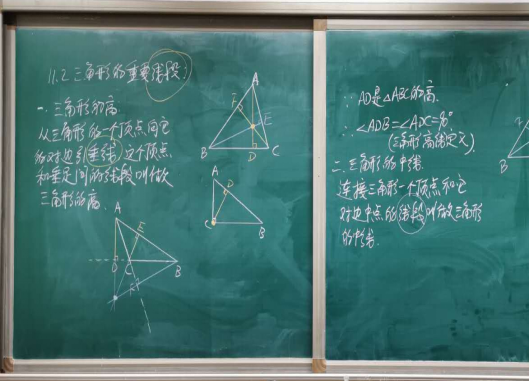 11.2 三角形的重要线段:
一. 三角形的高
从三角形的一个顶点向它
的对边引垂线 这个顶点
和垂足间的线段叫做
三角形的高.
A
F
E
B
D
C
A
D
C
B
A
E
D
C
B
F
∵ AD是△ABC的高.
∴ ∠ADB=∠ADC=90°
(三角形高线定义)
二. 三角形的中线
连接三角形一个顶点和它
对边中点的线段叫做三角形
的中线.
B